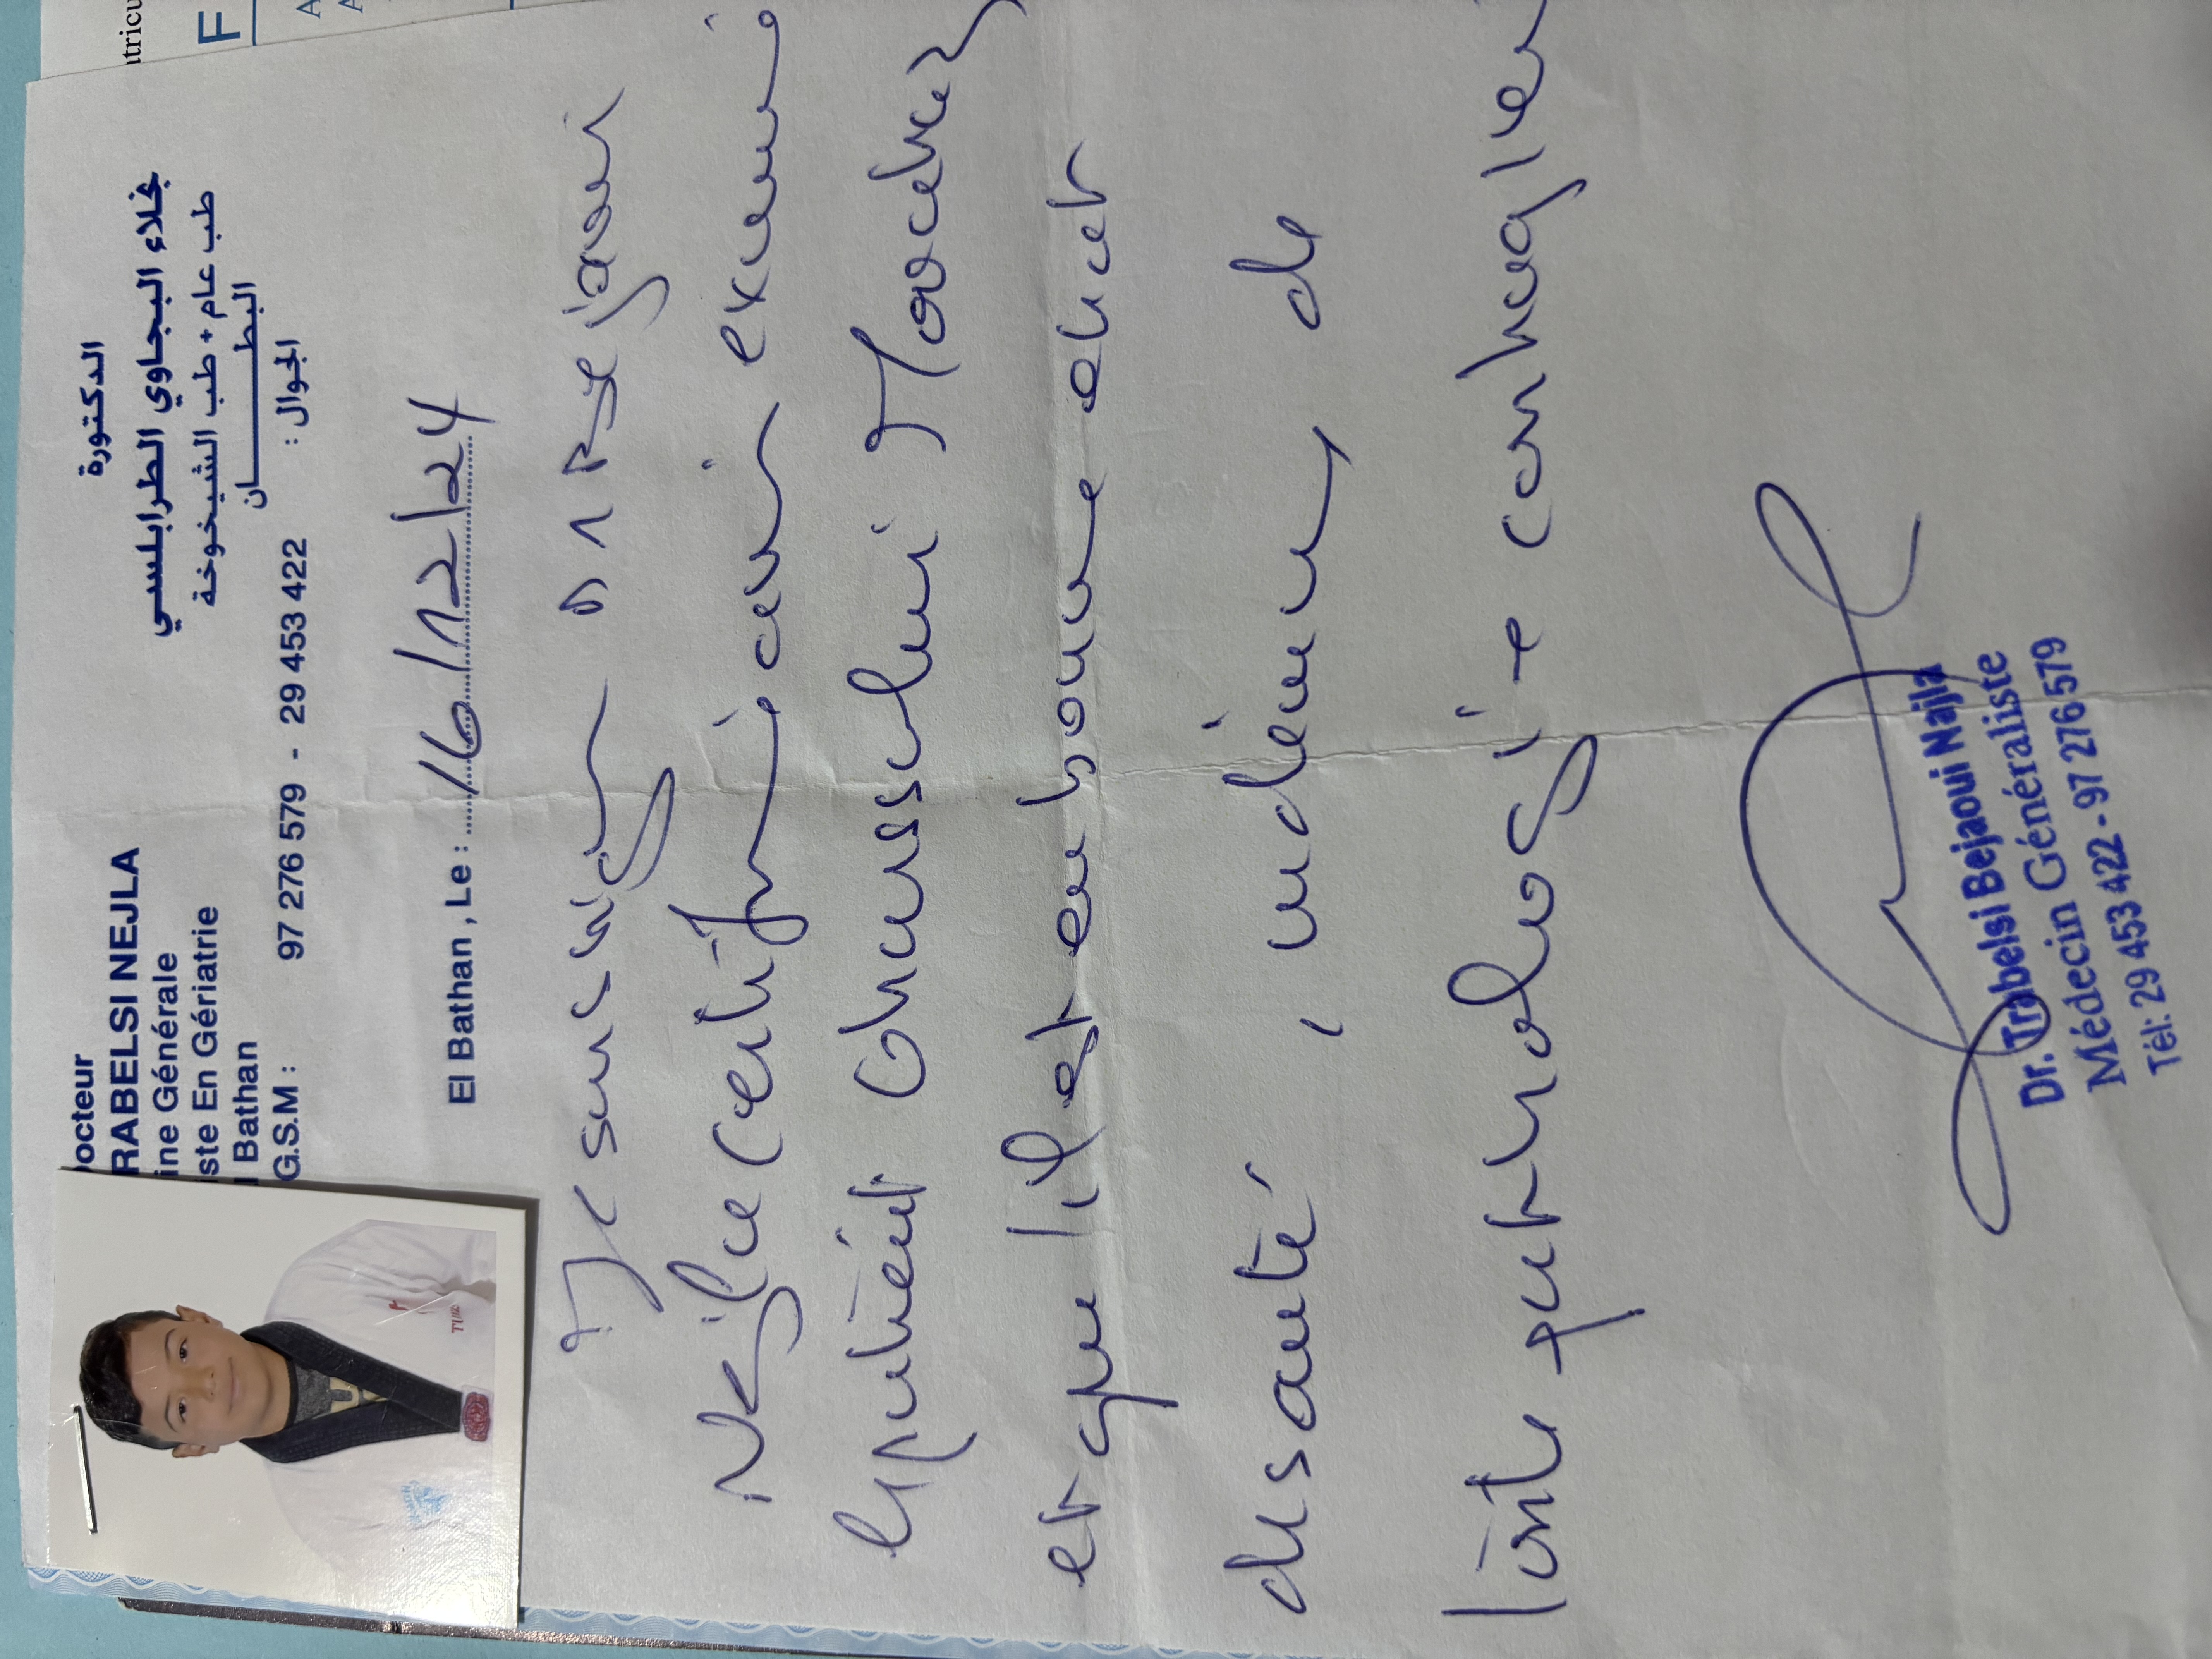 octeur
RABELSI NEJLA
ine Générale
ste En Gériatrie
Bathan
G.S.M : 97 276 579 - 29 453 422
الدكتورة
نجلاء البجاوي الطرابلسي
طب عام + طب الشيخوخة
البطـــــــــان
الجوال :
El Bathan , Le : 16/12/24
Je soussigné Dr Bejaoui
Nejla certifie avoir examiné
le patient
et qu'il est en bonne état
de santé, indemne de
toute pathologie contagieu
Dr. Trabelsi Bejaoui Najla
Médecin Généraliste
Tél: 29 453 422 - 97 276 579
atricu
F